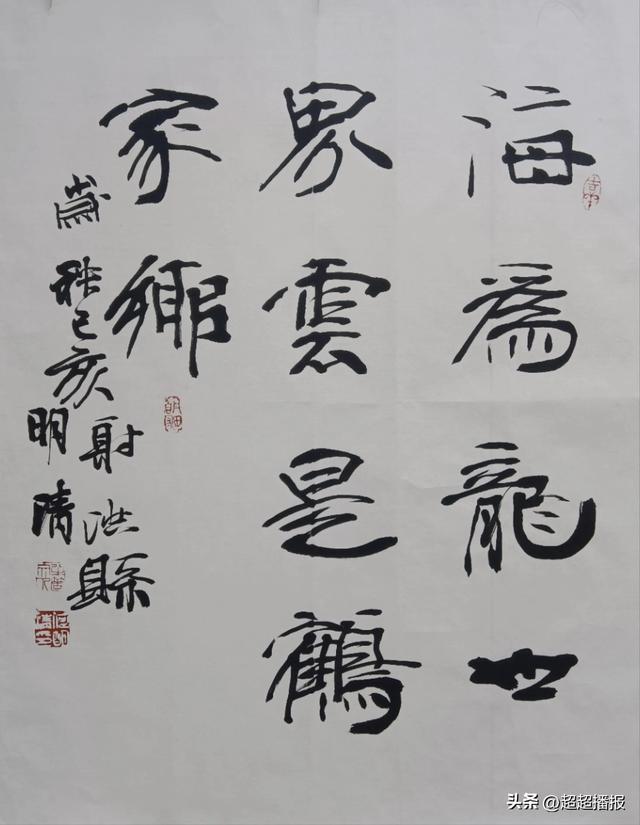 海為龍世
界雲是鶴
家鄉
歲己亥
射洪縣
明清
头条 @超超播报